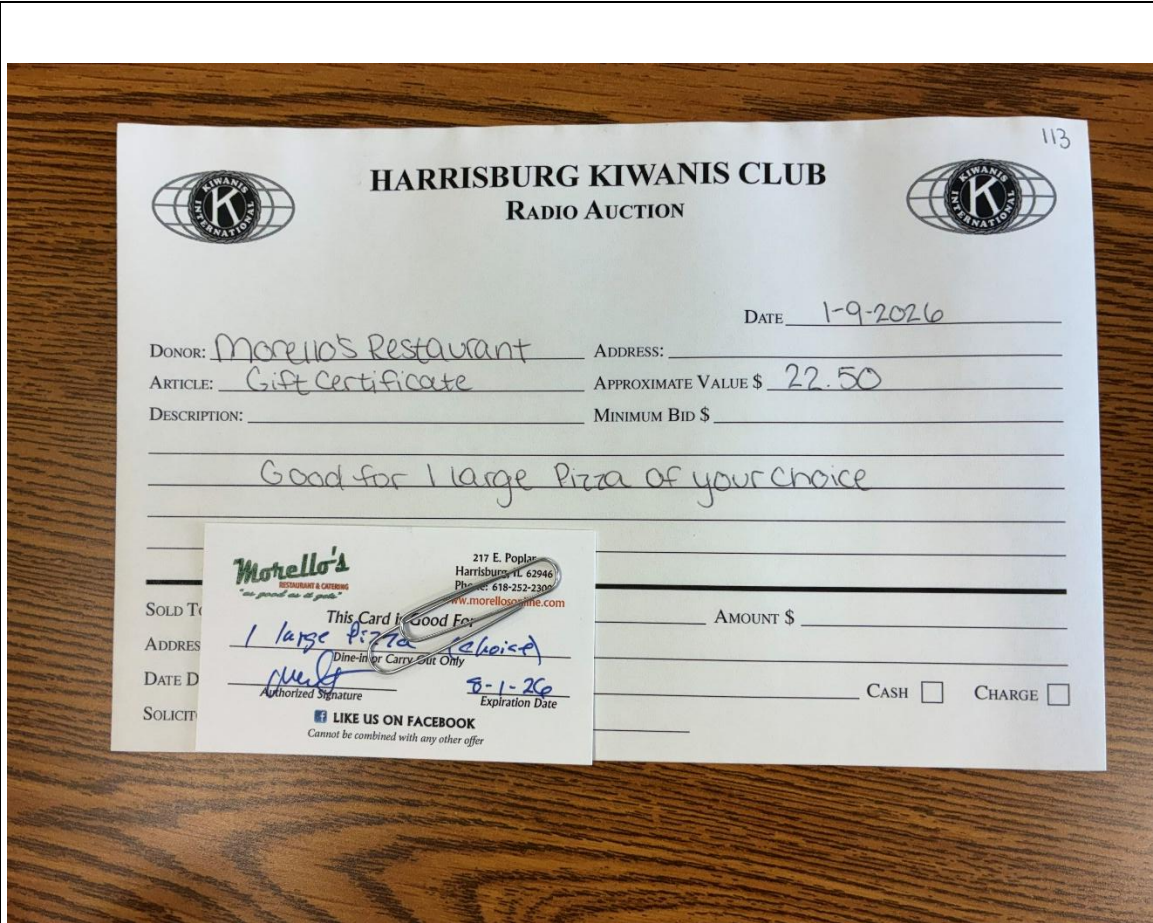 113
KIWANIS INTERNATIONAL K
HARRISBURG KIWANIS CLUB
RADIO AUCTION
KIWANIS INTERNATIONAL K
DATE 1-9-2026
DONOR: Morello's Restaurant ADDRESS:
ARTICLE: Gift Certificate APPROXIMATE VALUE $ 22.50
DESCRIPTION: MINIMUM BID $
Good for 1 large Pizza of your choice
Morello's
RESTAURANT & CATERING
"as good as it gets"
217 E. Poplar
Harrisburg, IL 62946
Phone: 618-252-230
www.morellosonline.com
This Card is Good For
1 large Pizza (choice)
Dine-in or Carry Out Only
8-1-26
Authorized Signature Expiration Date
LIKE US ON FACEBOOK
Cannot be combined with any other offer
SOLD TO AMOUNT $
ADDRES
DATE D CASH CHARGE
SOLICIT